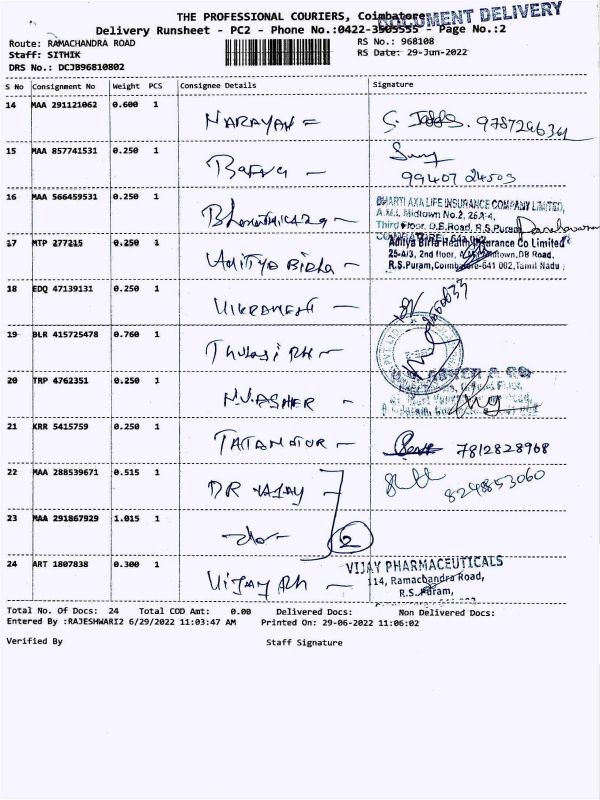 THE PROFESSIONAL COURIERS, Coimbatore
DOCUMENT DELIVERY
Delivery Runsheet - PC2 - Phone No.:0422-3505555 - Page No.:2
Route: RAMACHANDRA ROAD
RS No.: 968108
Staff: SITHIK
RS Date: 29-Jun-2022
DRS No.: DCJB96810802
S No Consignment No Weight PCS Consignee Details Signature
14 MAA 291121062 0.600 1 NARAYAN
15 MAA 857741531 0.250 1
99407 24503
16 MAA 566459531 0.250 1
BHARTI AXA LIFE INSURANCE COMPANY LIMITED,
A.M.I. Midtown No.2, 25A-4,
Third Floor, D.B.Road, R.S.Puram
17 MTP 277215 0.250 1 ADITYA BIRLA
Aditya Birla Health Insurance Co Limited
25-A/3, 2nd floor, Midtown, DB Road,
R.S.Puram, Coimbatore-641 002, Tamil Nadu
18 EDQ 47139131 0.250 1
19 BLR 415725478 0.760 1 Thulasi Ph
20 TRP 4762351 0.250 1
21 KRR 5415759 0.250 1 TATAMOTOR
7812828968
22 MAA 288539671 0.515 1 DR
8248853060
23 MAA 291867929 1.015 1 -do-
2
24 ART 1807838 0.300 1 Vijay Ph
VIJAY PHARMACEUTICALS
114, Ramachandra Road,
R.S. Puram,
Total No. Of Docs: 24 Total COD Amt: 0.00 Delivered Docs: Non Delivered Docs:
Entered By :RAJESHWARI2 6/29/2022 11:03:47 AM Printed On: 29-06-2022 11:06:02
Verified By Staff Signature